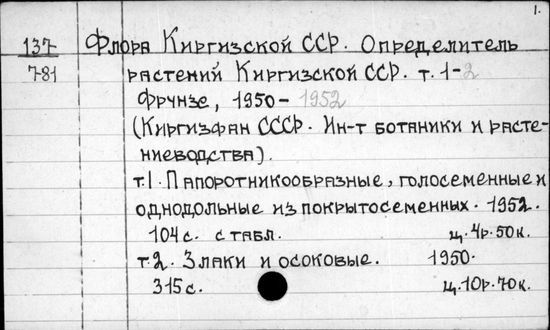 1.
137
7-81
Флора Киргизской ССР. Определитель
растений Киргизской ССР. т. 1-2
Фрунзе, 1950-1952
(Киргизфан СССР. Ин-т ботаники и расте-
ниеводства).
т.1. Папоротникообразные, голосеменные и
однодольные из покрытосеменных. 1952.
104 с. с табл. ц. 4р. 50к.
т.2. Злаки и осоковые. 1950.
315 с. ц. 10р. 70к.